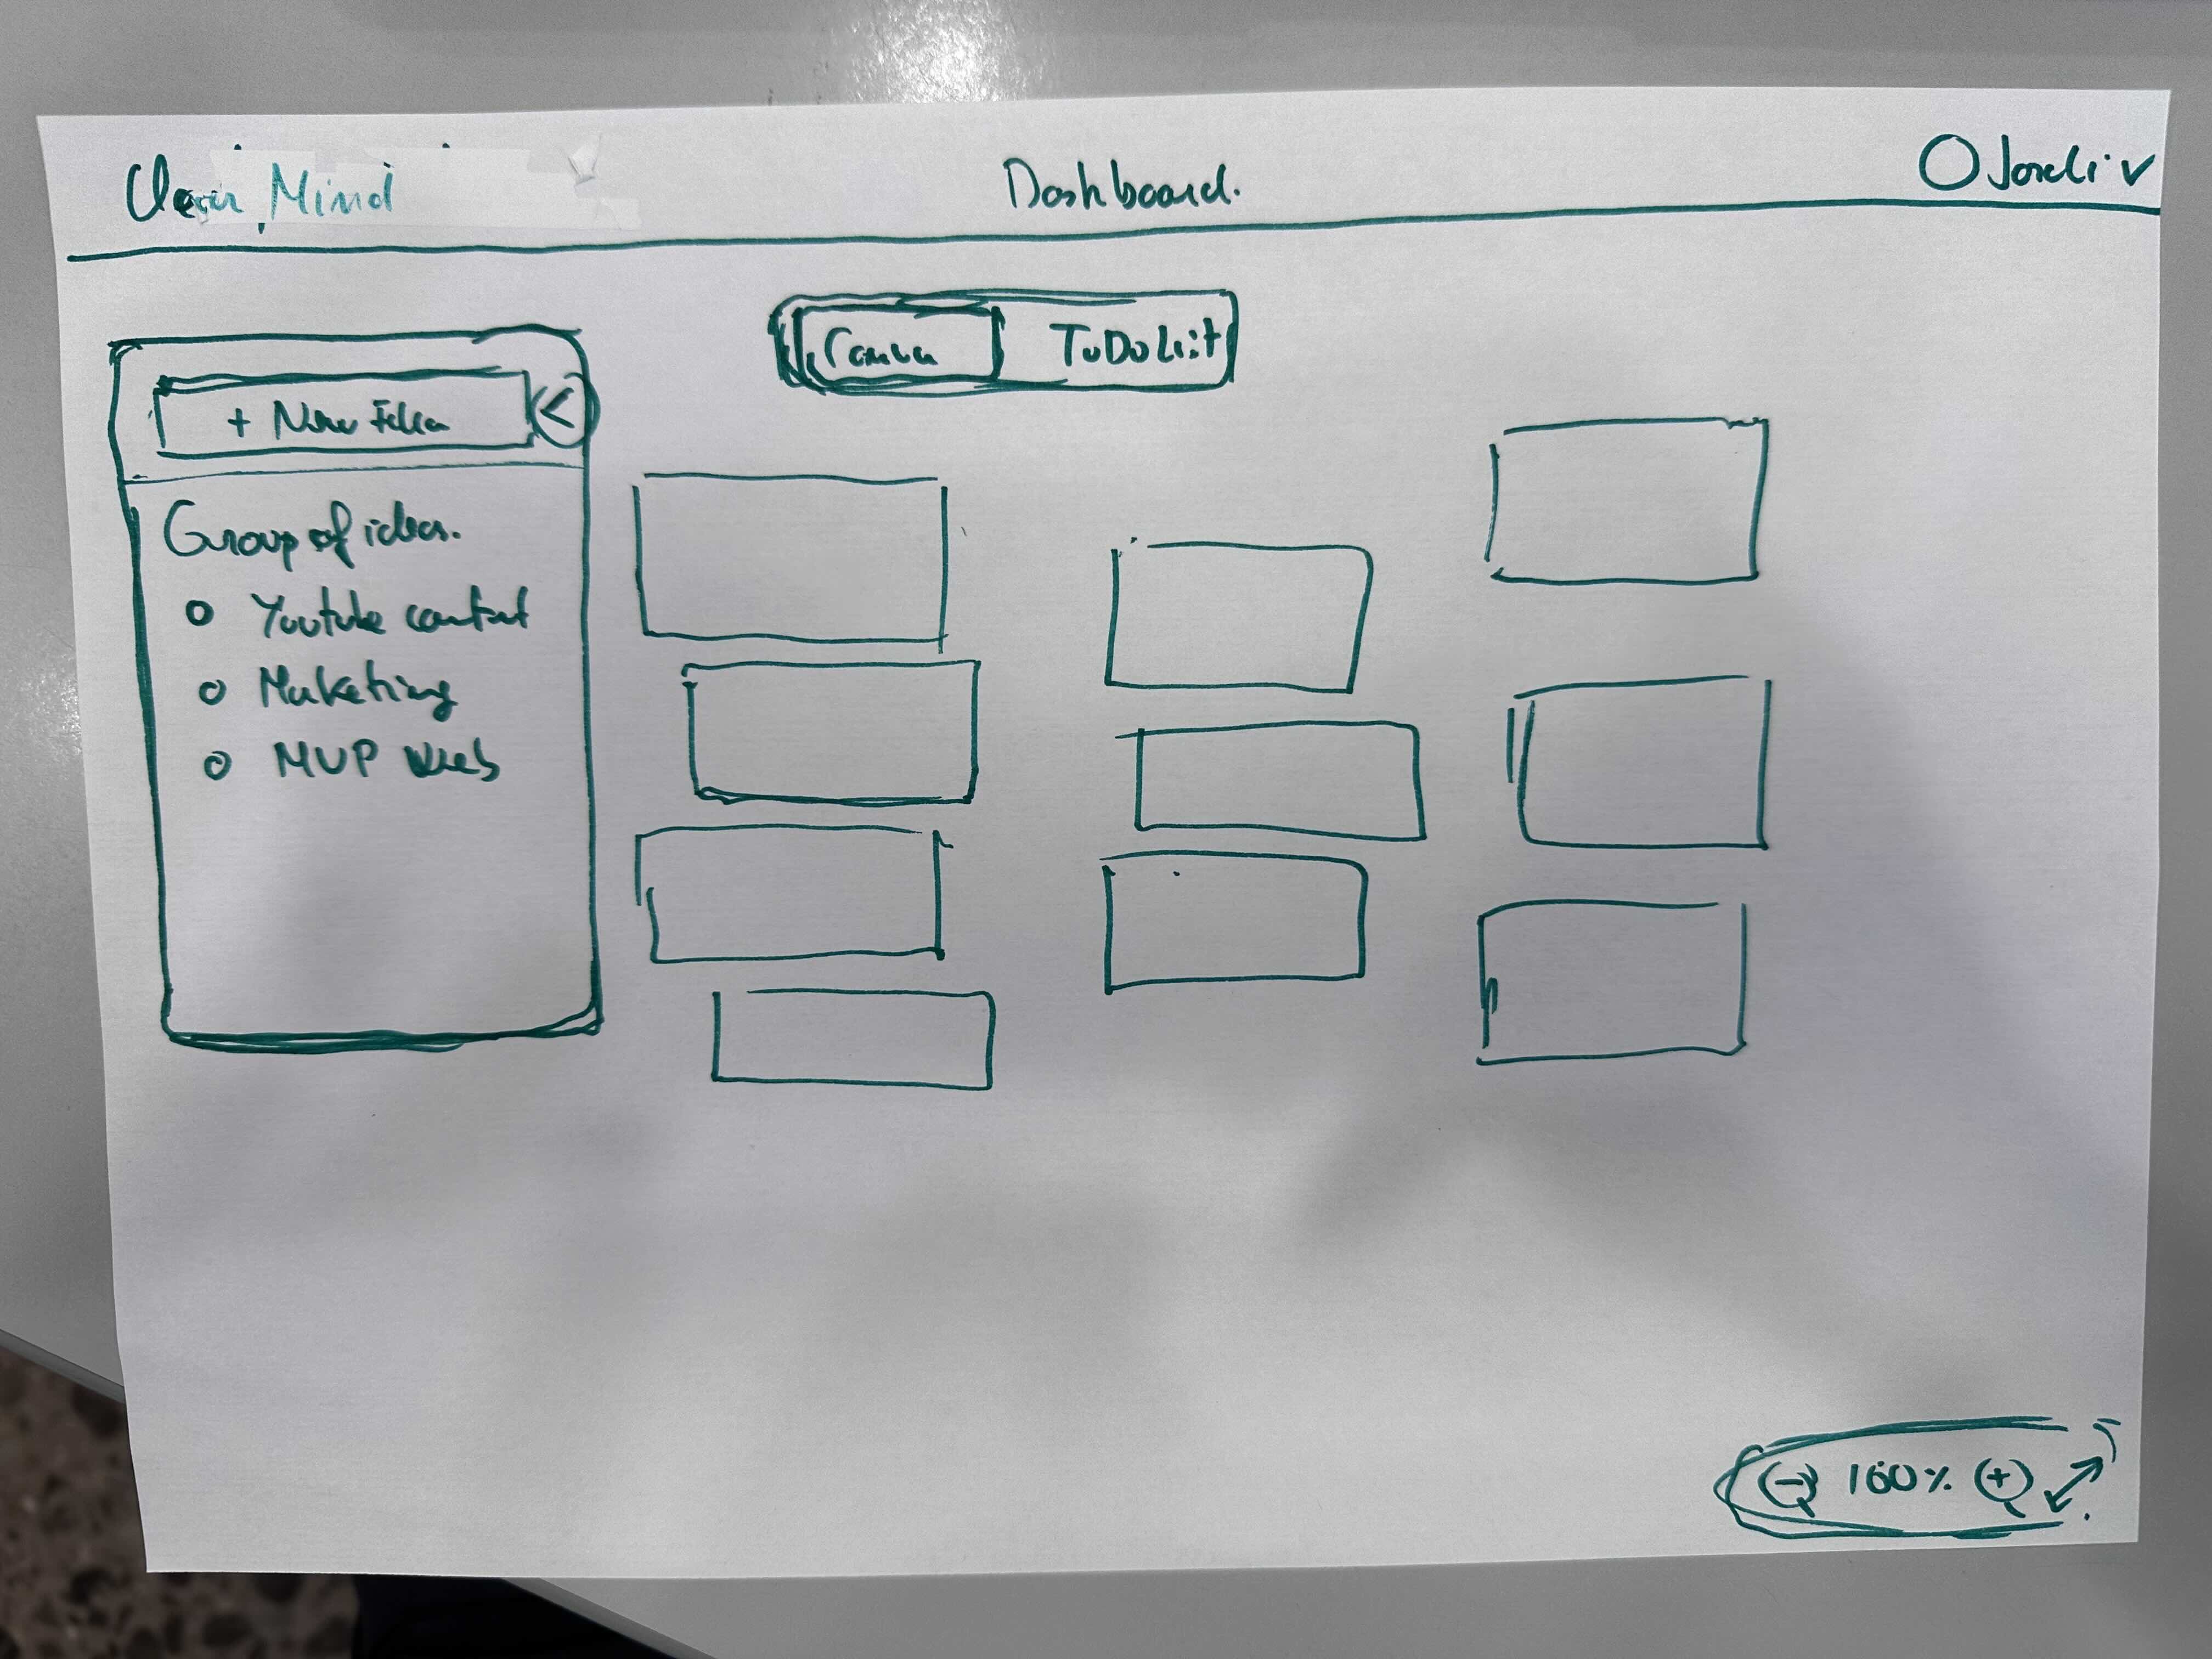 Clear Mind
Dashboard.
Jordi
Canva
ToDo List
+ New Idea
<
Group of ideas.
Youtube content
Marketing
MVP Web
- 100% +